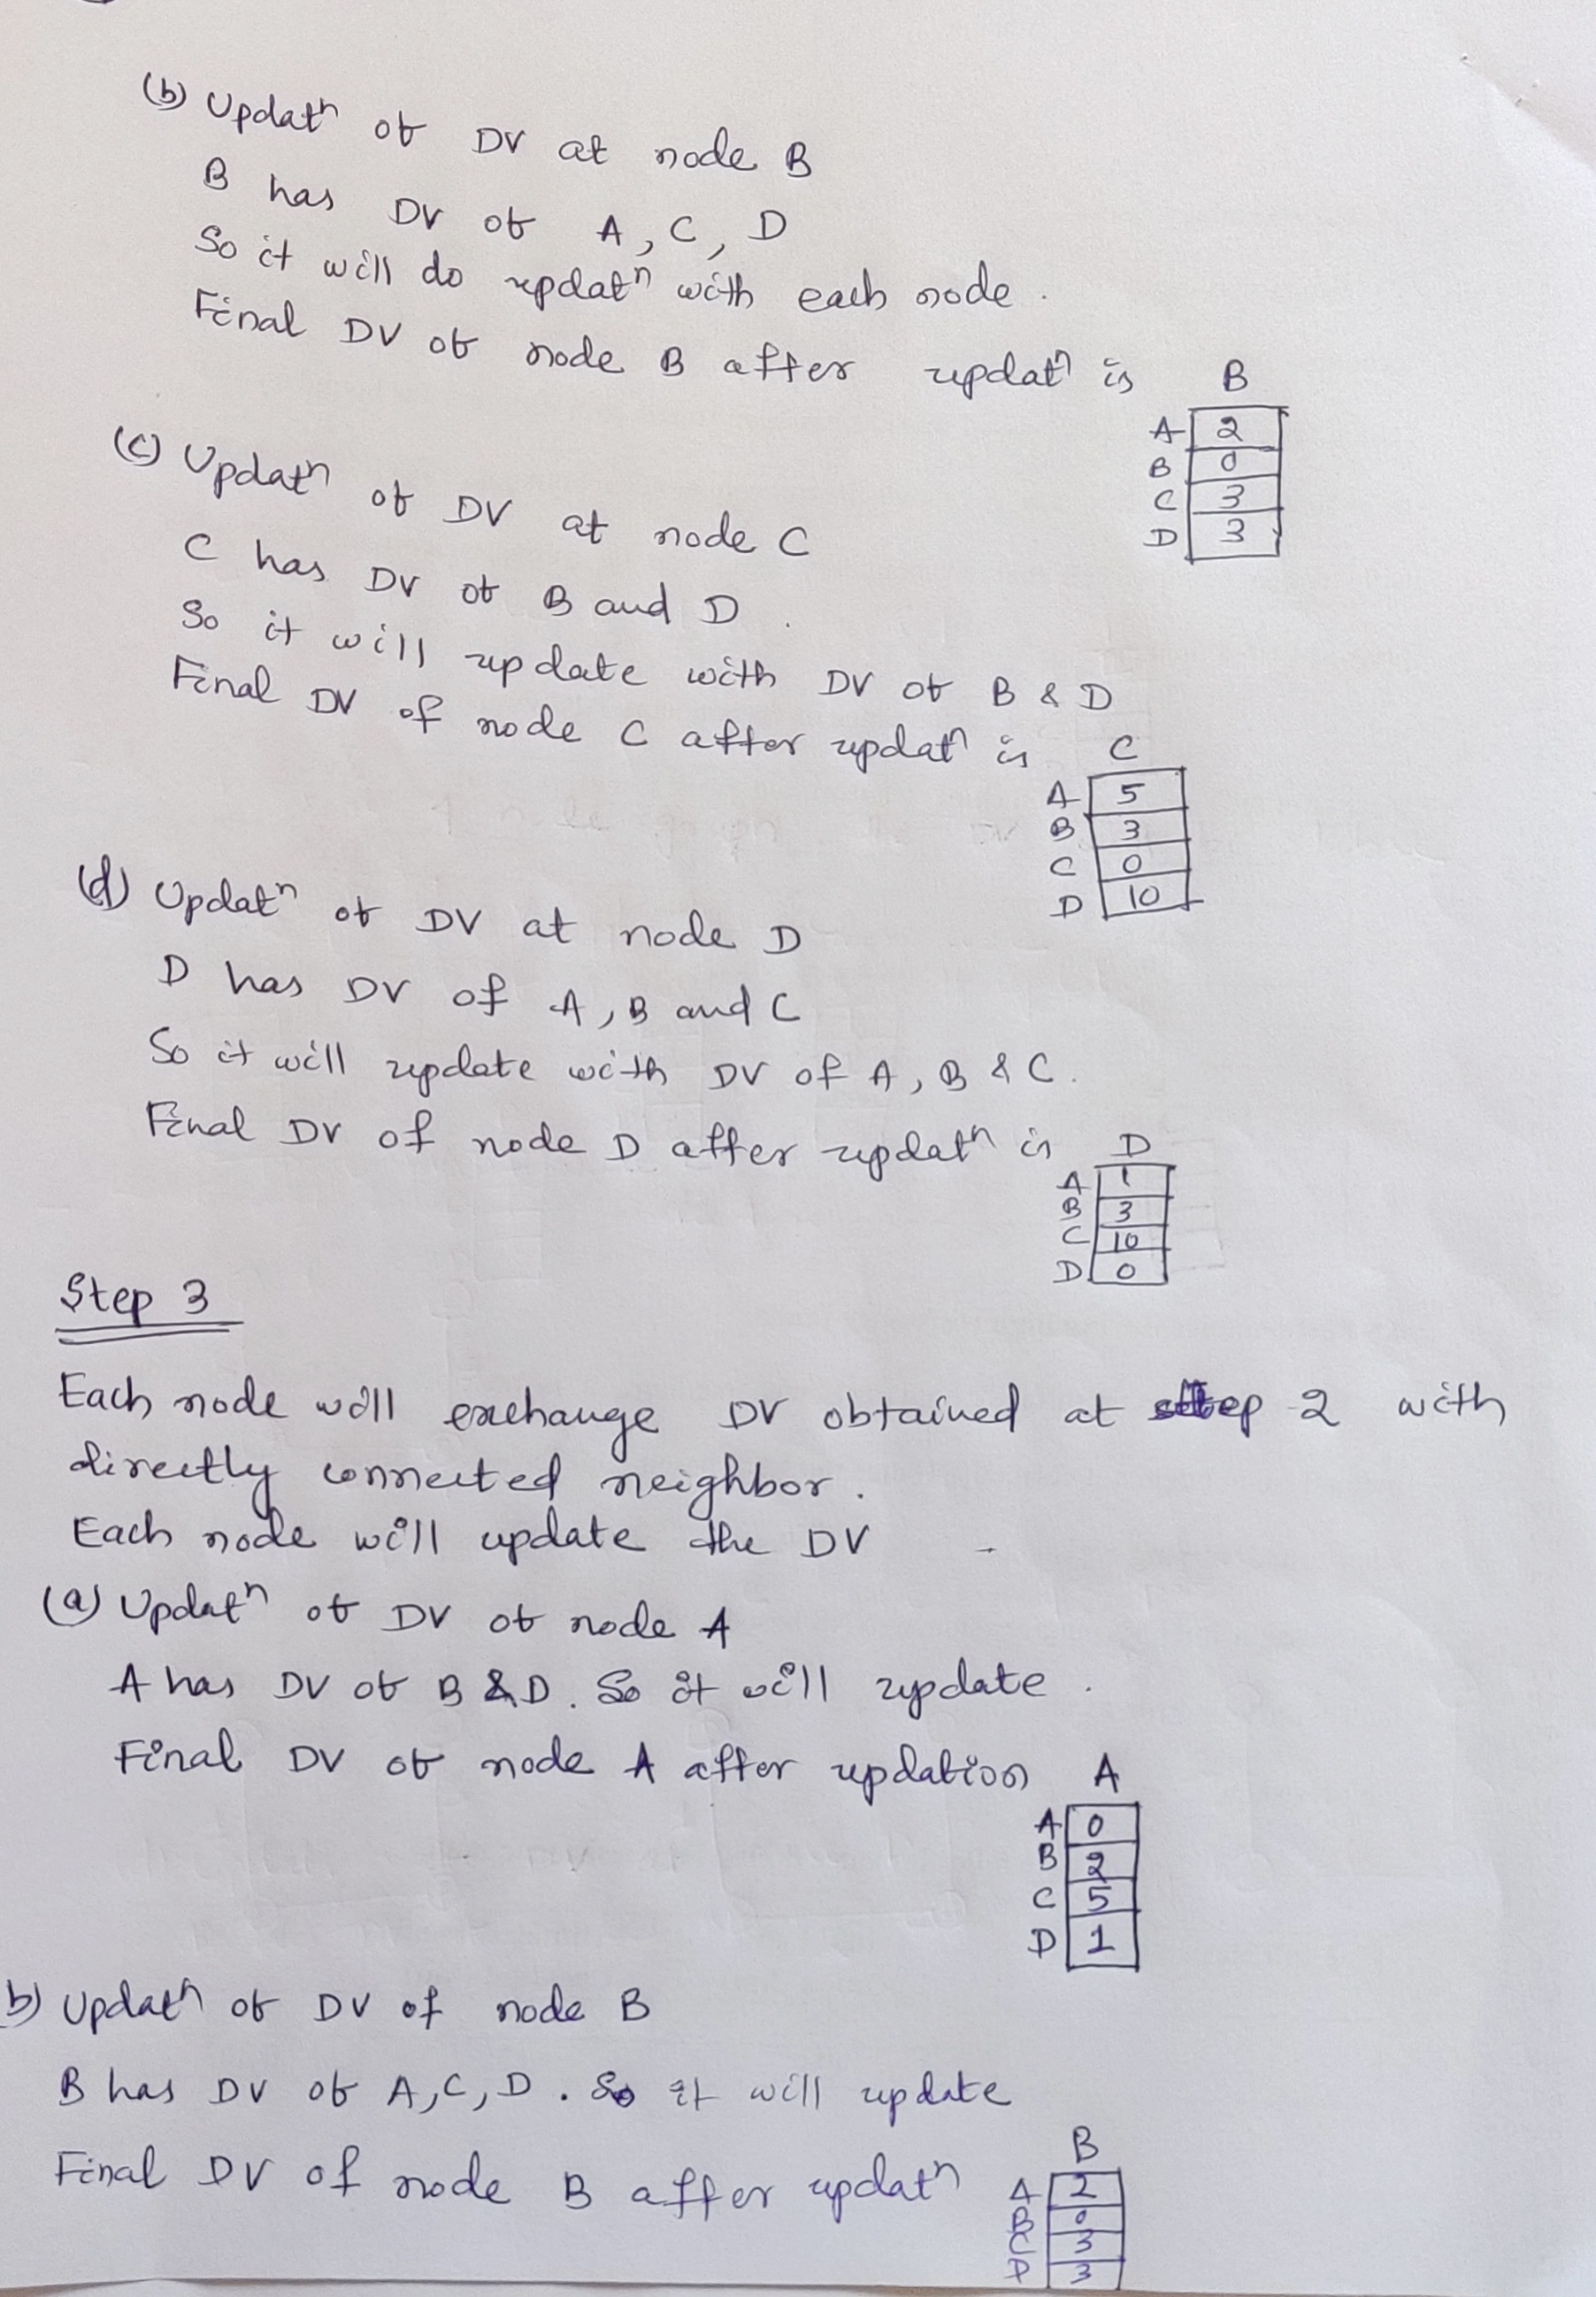 (b) Updatⁿ of DV at node B
B has DV of A, C, D
So it will do updatⁿ with each node.
Final DV of node B after updatⁿ is
B
A 2
B 0
C 3
D 3
(c) Updatⁿ of DV at node C
C has DV of B and D.
So it will update with DV of B & D
Final DV of node C after updatⁿ is
C
A 5
B 3
C 0
D 10
(d) Updatⁿ of DV at node D
D has DV of A, B and C
So it will update with DV of A, B & C.
Final DV of node D after updatⁿ is
D
A 1
B 3
C 10
D 0
Step 3
Each node will exchange DV obtained at step 2 with
directly connected neighbor.
Each node will update the DV
(a) Updatⁿ of DV of node A
A has DV of B & D. So it will update.
Final DV of node A after updation
A
A 0
B 2
C 5
D 1
b) Updatⁿ of DV of node B
B has DV of A, C, D. So it will update
Final DV of node B after updatⁿ
B
A 2
B 0
C 3
D 3